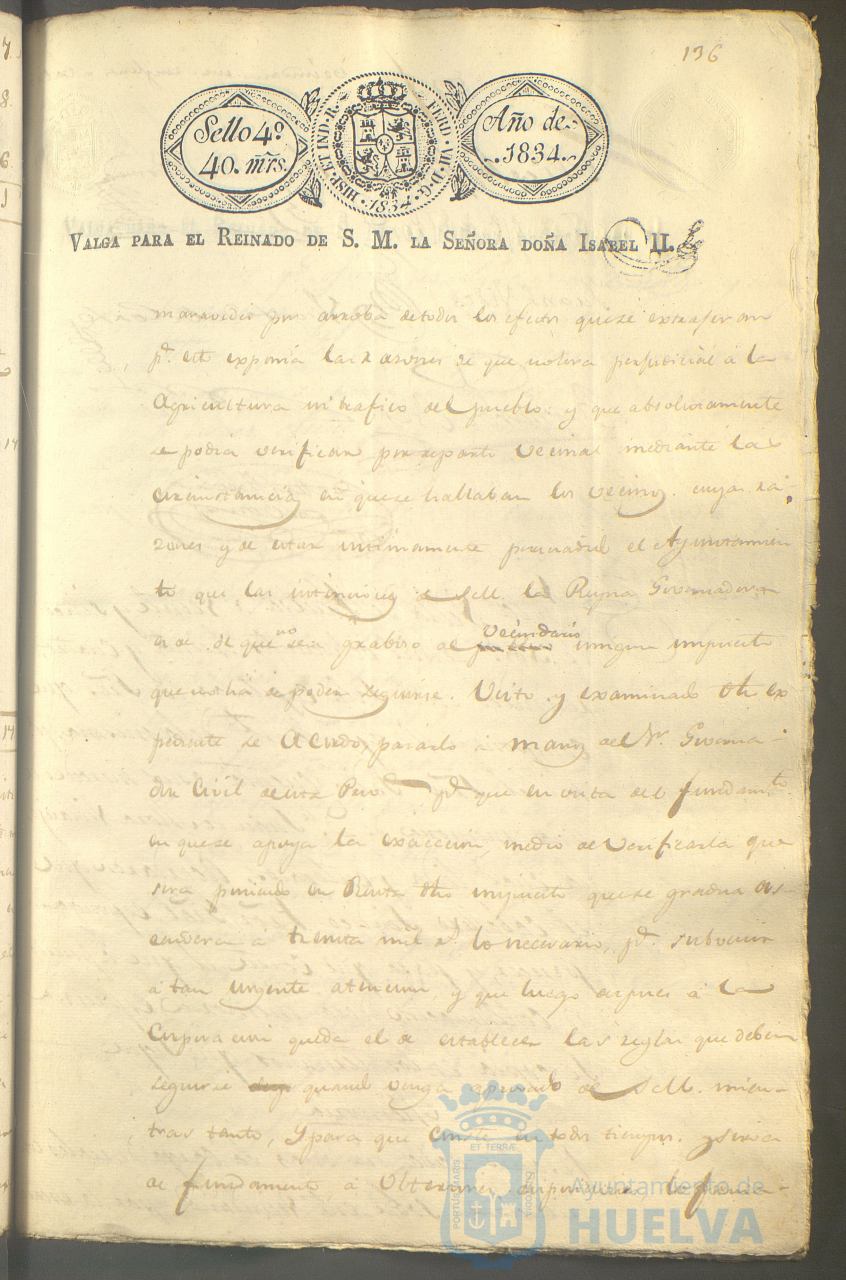 136
Sello 4º
40. mrs.
HISP. ET IND. R. FERD. VII. D. G. 1834
Año de
1834.
VALGA PARA EL REINADO DE S. M. LA SEÑORA DOÑA ISABEL II.
maravedis por arroba de todos los efectos que se extrageran
pª. esto exponia las razones de que no era perjudicial á la
Agricultura ni trafico del pueblo: y que absolutamente
se podia verificar por reparto vecinal mediante las
circunstancias en que se hallaban los vecinos. cuyas ra-
zones y de estar intimamente persuadido el Ayuntamien
to que las intenciones de S.M. la Reyna Governadora
es de de que no sea graboso al vecindario ningun impuesto
que se poder seguirse. Visto y examinado dho ex
pediente se Acordó pasarlo á manos del Sr. Governa-
dor Civil de esta Prov.ª pª. que en vista del fundam.to
en que se apoya la exaccion, medio de Verificarla que
sera puniendo en Renta dho impuesto que se gradua as-
cendera á treinta mil rs. lo necesario, pª. subvenir
á tan urgente atencion, y que luego despues á la
Corporacion quede el de establecer las reglas que deben
seguirse quando venga aprovado de S.M. mien-
tras tanto, y para que conste en todos tiempos. y sirva
de fundamento á Ulteriores lo firma-
PORTUS MARIS ET TERRAE CUSTODIA
Ayuntamiento de
HUELVA